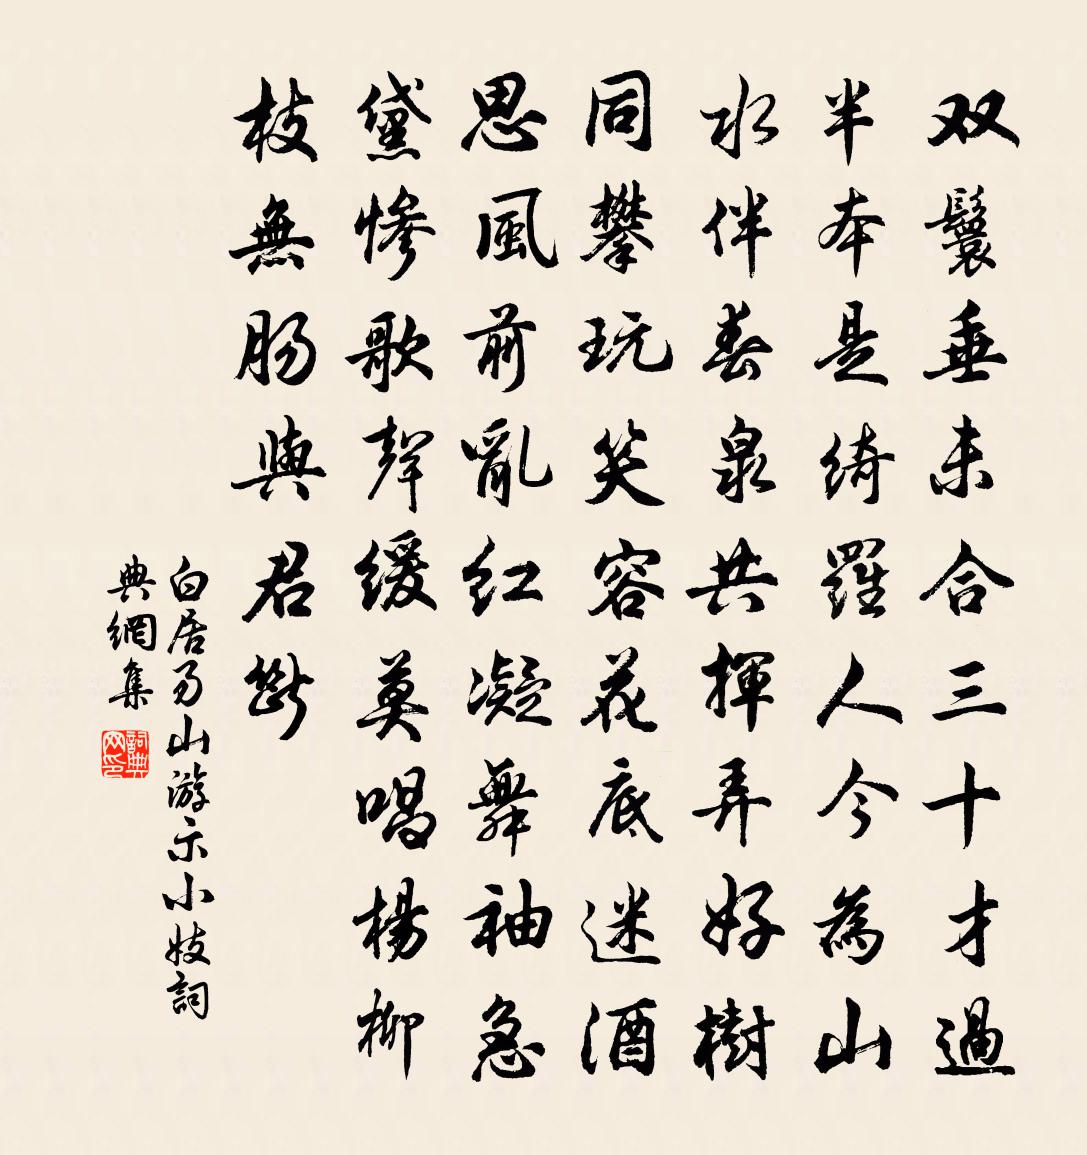 双鬟垂未合三十才過
半本是綺羅人今為山
水伴春泉共揮弄好樹
同攀玩笑容花底迷酒
思風前亂红凝舞袖急
黛慘歌聲缓莫唱楊柳
枝無腸與君断
白居易山游示小妓詞
典網集
詞典网印